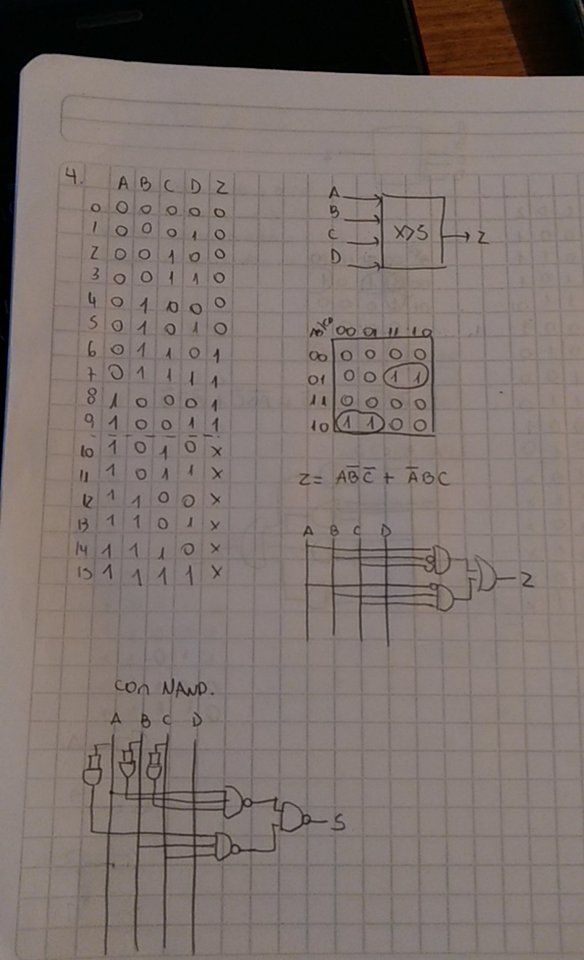 4.
A B C D Z
0 0 0 0 0 0
1 0 0 0 1 0
2 0 0 1 0 0
3 0 0 1 1 0
4 0 1 0 0 0
5 0 1 0 1 0
6 0 1 1 0 1
7 0 1 1 1 1
8 1 0 0 0 1
9 1 0 0 1 1
10 1 0 1 0 X
11 1 0 1 1 X
12 1 1 0 0 X
13 1 1 0 1 X
14 1 1 1 0 X
15 1 1 1 1 X
A
B
C
D
X>5
Z
AB CD 00 01 11 10
00 0 0 0 0
01 0 0 1 1
11 0 0 0 0
10 1 1 0 0
Z= AB̅C̅ + A̅BC
A B C D
Z
con NAND.
A B C D
S